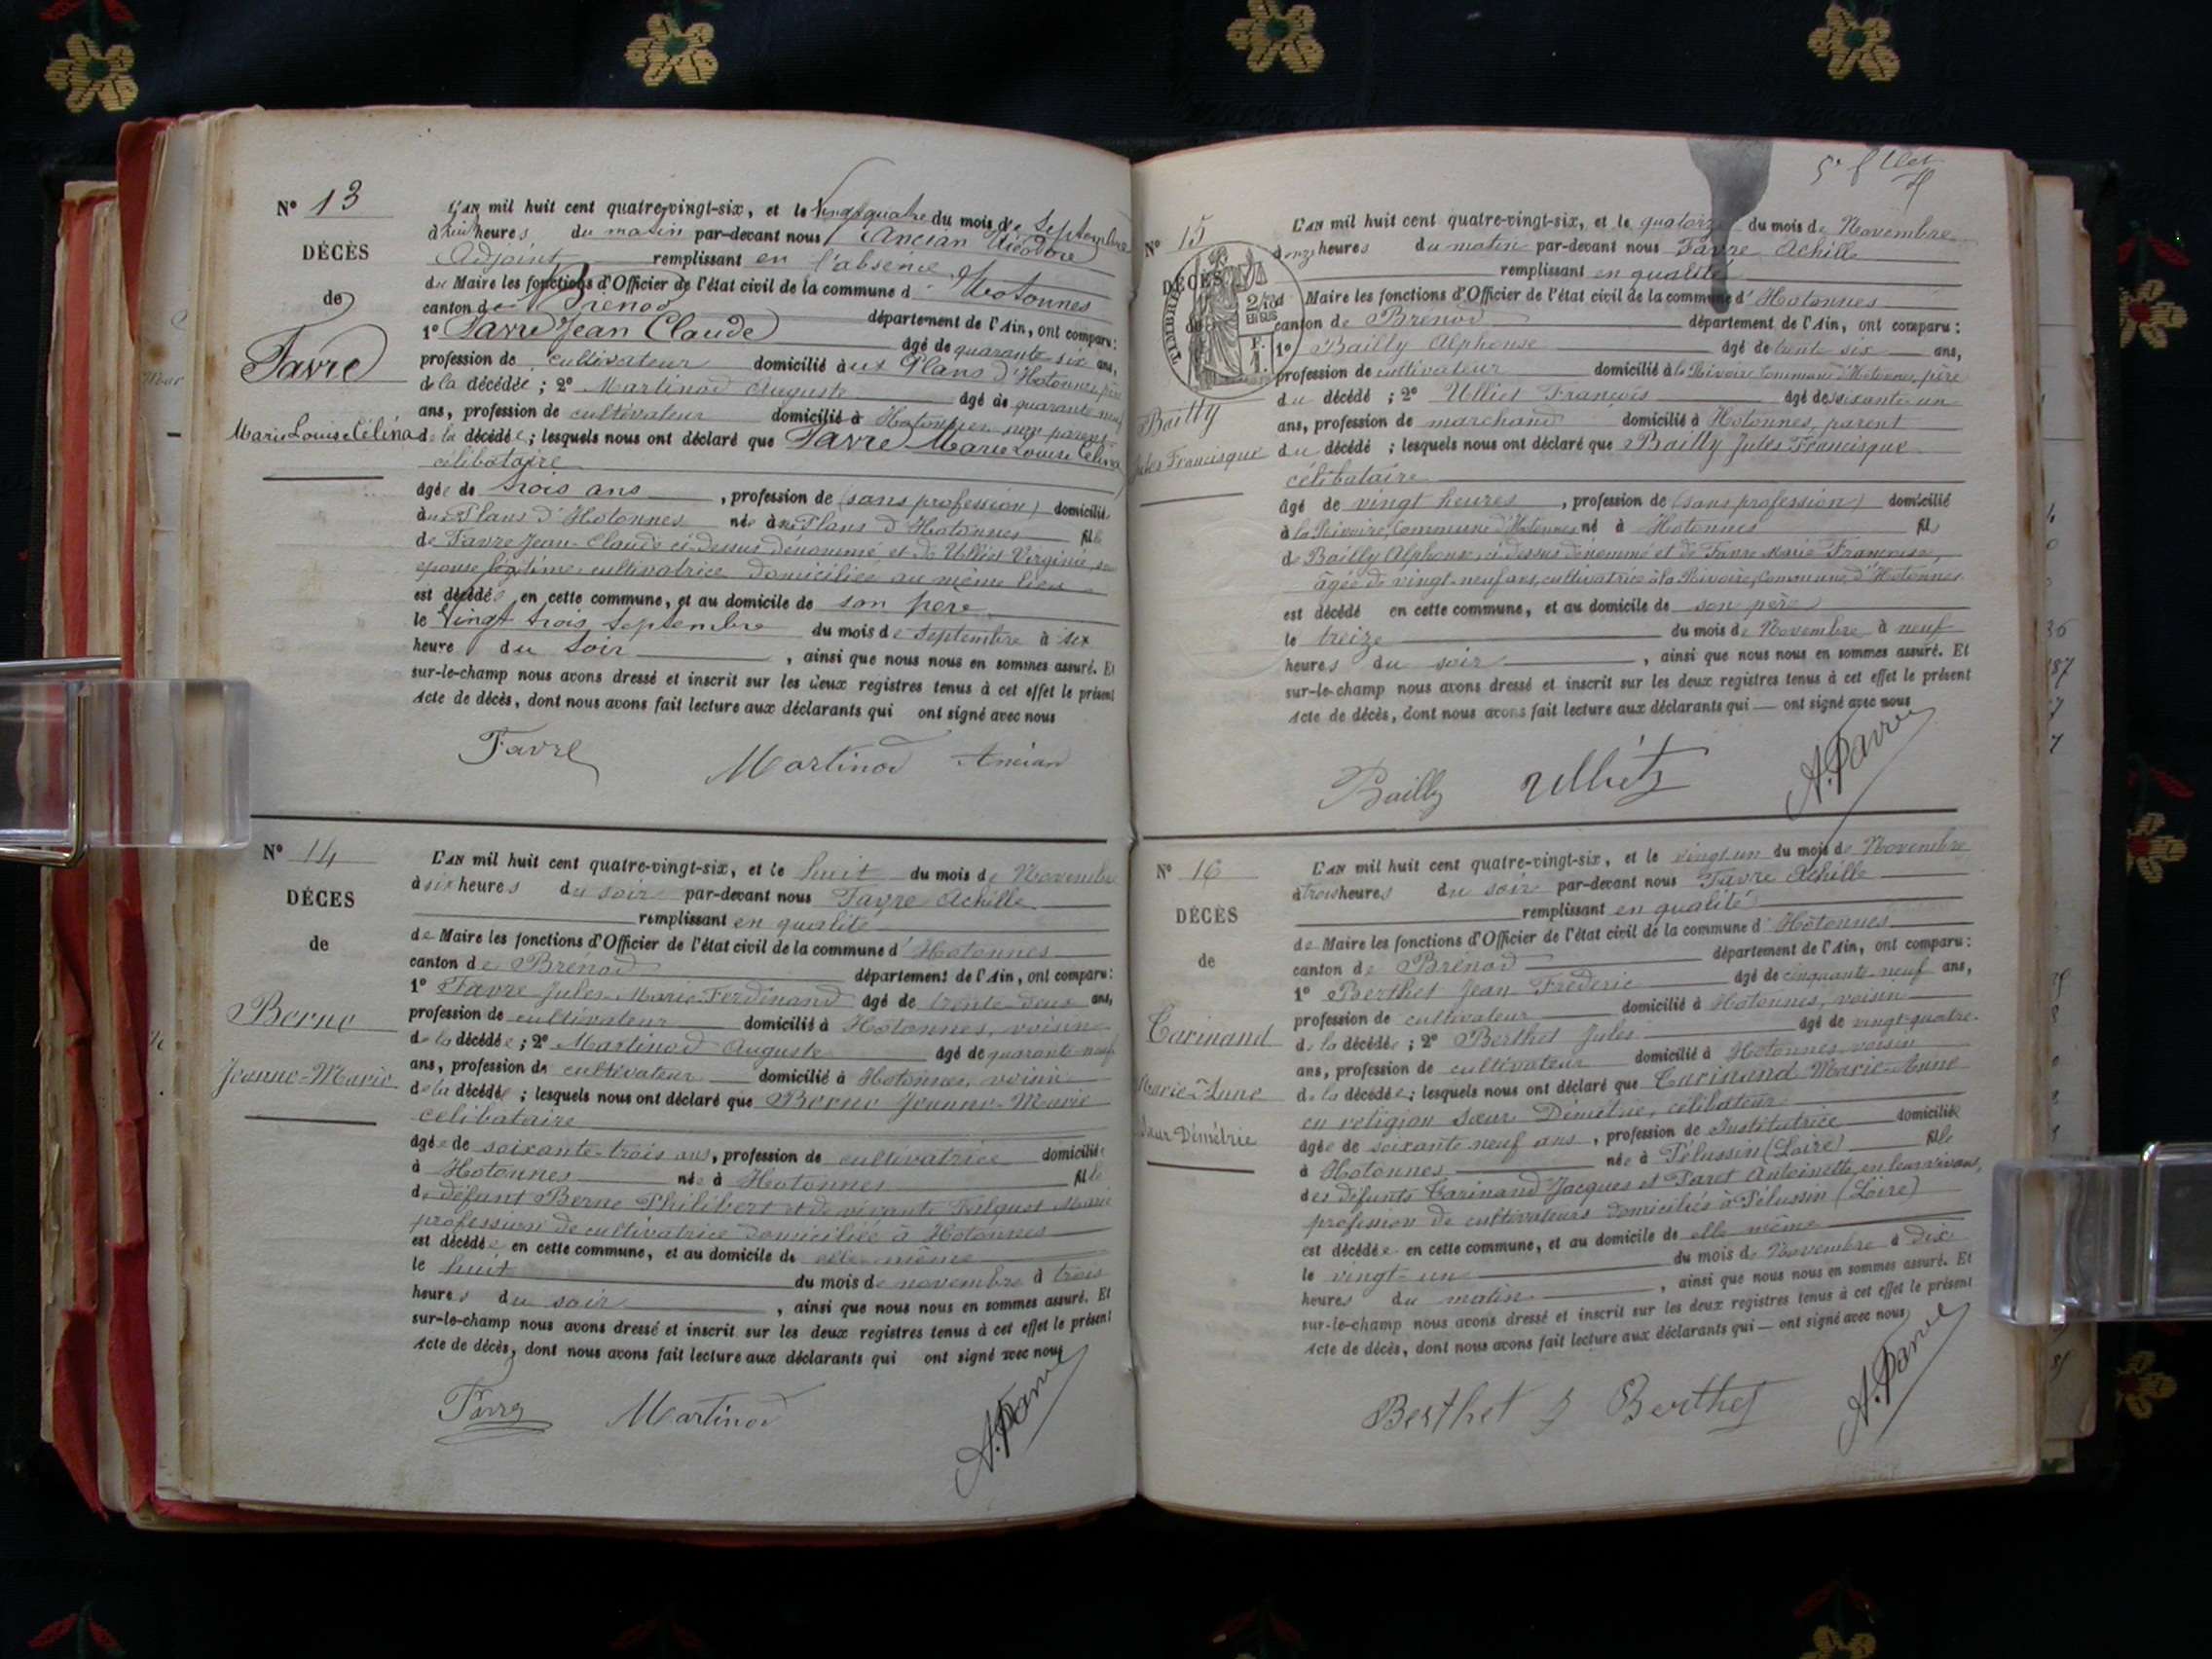 N° 13
DÉCÈS
de
Favre
Marie Louise Célina
L'AN mil huit cent quatre-vingt-six, et le Vingt quatre du mois de Septembre
à huit heures du matin par-devant nous Ancian Théodore
Adjoint remplissant en l'absence
du Maire les fonctions d'Officier de l'état civil de la commune d'Hotonnes
canton de Brenod département de l'Ain, ont comparu:
1° Favre Jean Claude âgé de quarante six ans,
profession de cultivateur domicilié aux Plans d'Hotonnes, père
de la décédée; 2° Martinod Auguste âgé de quarante neuf
ans, profession de cultivateur domicilié à Hotonnes non parent
de la décédée; lesquels nous ont déclaré que Favre Marie Louise Célina
célibataire
âgée de trois ans, profession de (sans profession) domiciliée
aux Plans d'Hotonnes née aux Plans d'Hotonnes fille
de Favre Jean-Claude ci-dessus dénommé et de Ulliet Virginie, son
épouse légitime, cultivatrice domiciliée au même lieu
est décédée en cette commune, et au domicile de son père
le Vingt trois Septembre du mois de Septembre à six
heure du Soir, ainsi que nous nous en sommes assuré. Et
sur-le-champ nous avons dressé et inscrit sur les deux registres tenus à cet effet le présent
Acte de décès, dont nous avons fait lecture aux déclarants qui ont signé avec nous
Favre Martinod Ancian
N° 14
DÉCES
de
Berne
Jeanne-Marie
L'AN mil huit cent quatre-vingt-six, et le huit du mois de Novembre
à six heures du soir par-devant nous Favre Achille
remplissant en qualité
de Maire les fonctions d'Officier de l'état civil de la commune d'Hotonnes
canton de Brénod département de l'Ain, ont comparu:
1° Favre Jules-Marie-Ferdinand âgé de trente-deux ans,
profession de cultivateur domicilié à Hotonnes, voisin
de la décédée; 2° Martinod Auguste âgé de quarante-neuf
ans, profession de cultivateur domicilié à Hotonnes, voisin
de la décédée; lesquels nous ont déclaré que Berne Jeanne-Marie
célibataire
âgée de soixante-trois ans, profession de cultivatrice domiciliée
à Hotonnes née à Hotonnes fille
de défunt Berne Philibert et de vivante Marie
profession de cultivatrice domiciliée à Hotonnes
est décédée en cette commune, et au domicile de elle-même
le huit du mois de novembre à trois
heures du soir, ainsi que nous nous en sommes assuré. Et
sur-le-champ nous avons dressé et inscrit sur les deux registres tenus à cet effet le présent
Acte de décès, dont nous avons fait lecture aux déclarants qui ont signé avec nous
Favre Martinod A. Favre
N° 15
DÉCÈS
de
TIMBRE
2/10es
EN SUS
F.
1.
Bailly
Jules Francisque
L'AN mil huit cent quatre-vingt-six, et le quatorze du mois de Novembre
à onze heures du matin par-devant nous Favre Achille
remplissant en qualité
Maire les fonctions d'Officier de l'état civil de la commune d'Hotonnes
canton de Brénod département de l'Ain, ont comparu:
1° Bailly Alphonse âgé de trente six ans,
profession de cultivateur domicilié à la Rivoire, Commune d'Hotonnes, père
du décédé; 2° Ulliet François âgé de soixante-un
ans, profession de marchand domicilié à Hotonnes, parent
du décédé; lesquels nous ont déclaré que Bailly Jules Francisque
célibataire
âgé de vingt heures, profession de (sans profession) domicilié
à la Rivoire, Commune d'Hotonnes né à Hotonnes fils
de Bailly Alphonse, ci-dessus dénommé et de Favre Marie Françoise,
âgée de vingt-neuf ans, cultivatrice à la Rivoire, Commune d'Hotonnes
est décédé en cette commune, et au domicile de son père
le treize du mois de Novembre à neuf
heures du soir, ainsi que nous nous en sommes assuré. Et
sur-le-champ nous avons dressé et inscrit sur les deux registres tenus à cet effet le présent
Acte de décès, dont nous avons fait lecture aux déclarants qui — ont signé avec nous
Bailly Ulliet A. Favre
N° 16
DÉCÈS
de
Carinand
Marie-Anne
Sœur Démétrie
L'AN mil huit cent quatre-vingt-six, et le vingt-un du mois de Novembre
à trois heures du soir par-devant nous Favre Achille
remplissant en qualité
de Maire les fonctions d'Officier de l'état civil de la commune d'Hotonnes
canton de Brénod département de l'Ain, ont comparu:
1° Berthet Jean Frédéric âgé de cinquante-neuf ans,
profession de cultivateur domicilié à Hotonnes, voisin
de la décédée; 2° Berthet Jules âgé de vingt-quatre
ans, profession de cultivateur domicilié à Hotonnes, voisin
de la décédée; lesquels nous ont déclaré que Carinand Marie-Anne
en religion Sœur Démétrie, célibataire
âgée de soixante-neuf ans, profession de Institutrice domiciliée
à Hotonnes née à Pélussin (Loire) fille
des défunts Carinand Jacques et Paret Antoinette, en leur vivant,
profession de cultivateurs domiciliés à Pélussin (Loire)
est décédée en cette commune, et au domicile de elle même
le vingt-un du mois de Novembre à dix
heures du matin, ainsi que nous nous en sommes assuré. Et
sur-le-champ nous avons dressé et inscrit sur les deux registres tenus à cet effet le présent
Acte de décès, dont nous avons fait lecture aux déclarants qui — ont signé avec nous
Berthet J Berthet A. Favre